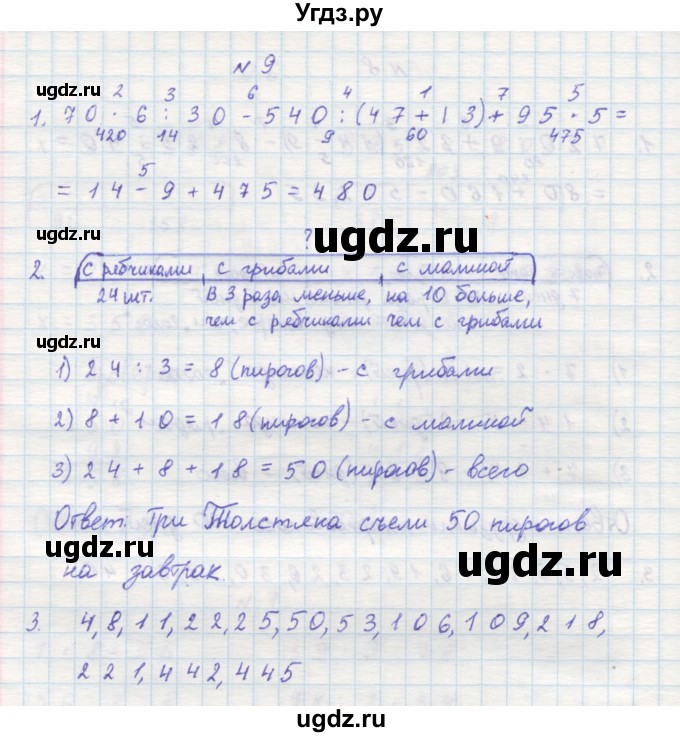 Угдз.ру
№ 9
2 3 6 4 1 7 5
1. 70 · 6 : 30 - 540 : (47 + 13) + 95 · 5 =
420 14 9 60 475
5
= 14 - 9 + 475 = 480
ugdz.ru
ugdz.ru
ugdz.ru
?
ugdz.ru
2. с рябчиками с грибами с малиной
24 шт. В 3 раза меньше, на 10 больше,
чем с рябчиками чем с грибами
ugdz.ru
1) 24 : 3 = 8 (пирогов) - с грибами
2) 8 + 10 = 18 (пирогов) - с малиной
ugdz.ru
ugdz.ru
3) 24 + 8 + 18 = 50 (пирогов) - всего
Ответ: Три Толстяка съели 50 пирогов
ugdz.ru
ugdz.ru
на завтрак.
3. 4, 8, 11, 22, 25, 50, 53, 106, 109, 218,
221, 442, 445
ugdz.ru
ugdz.ru
ugdz.ru